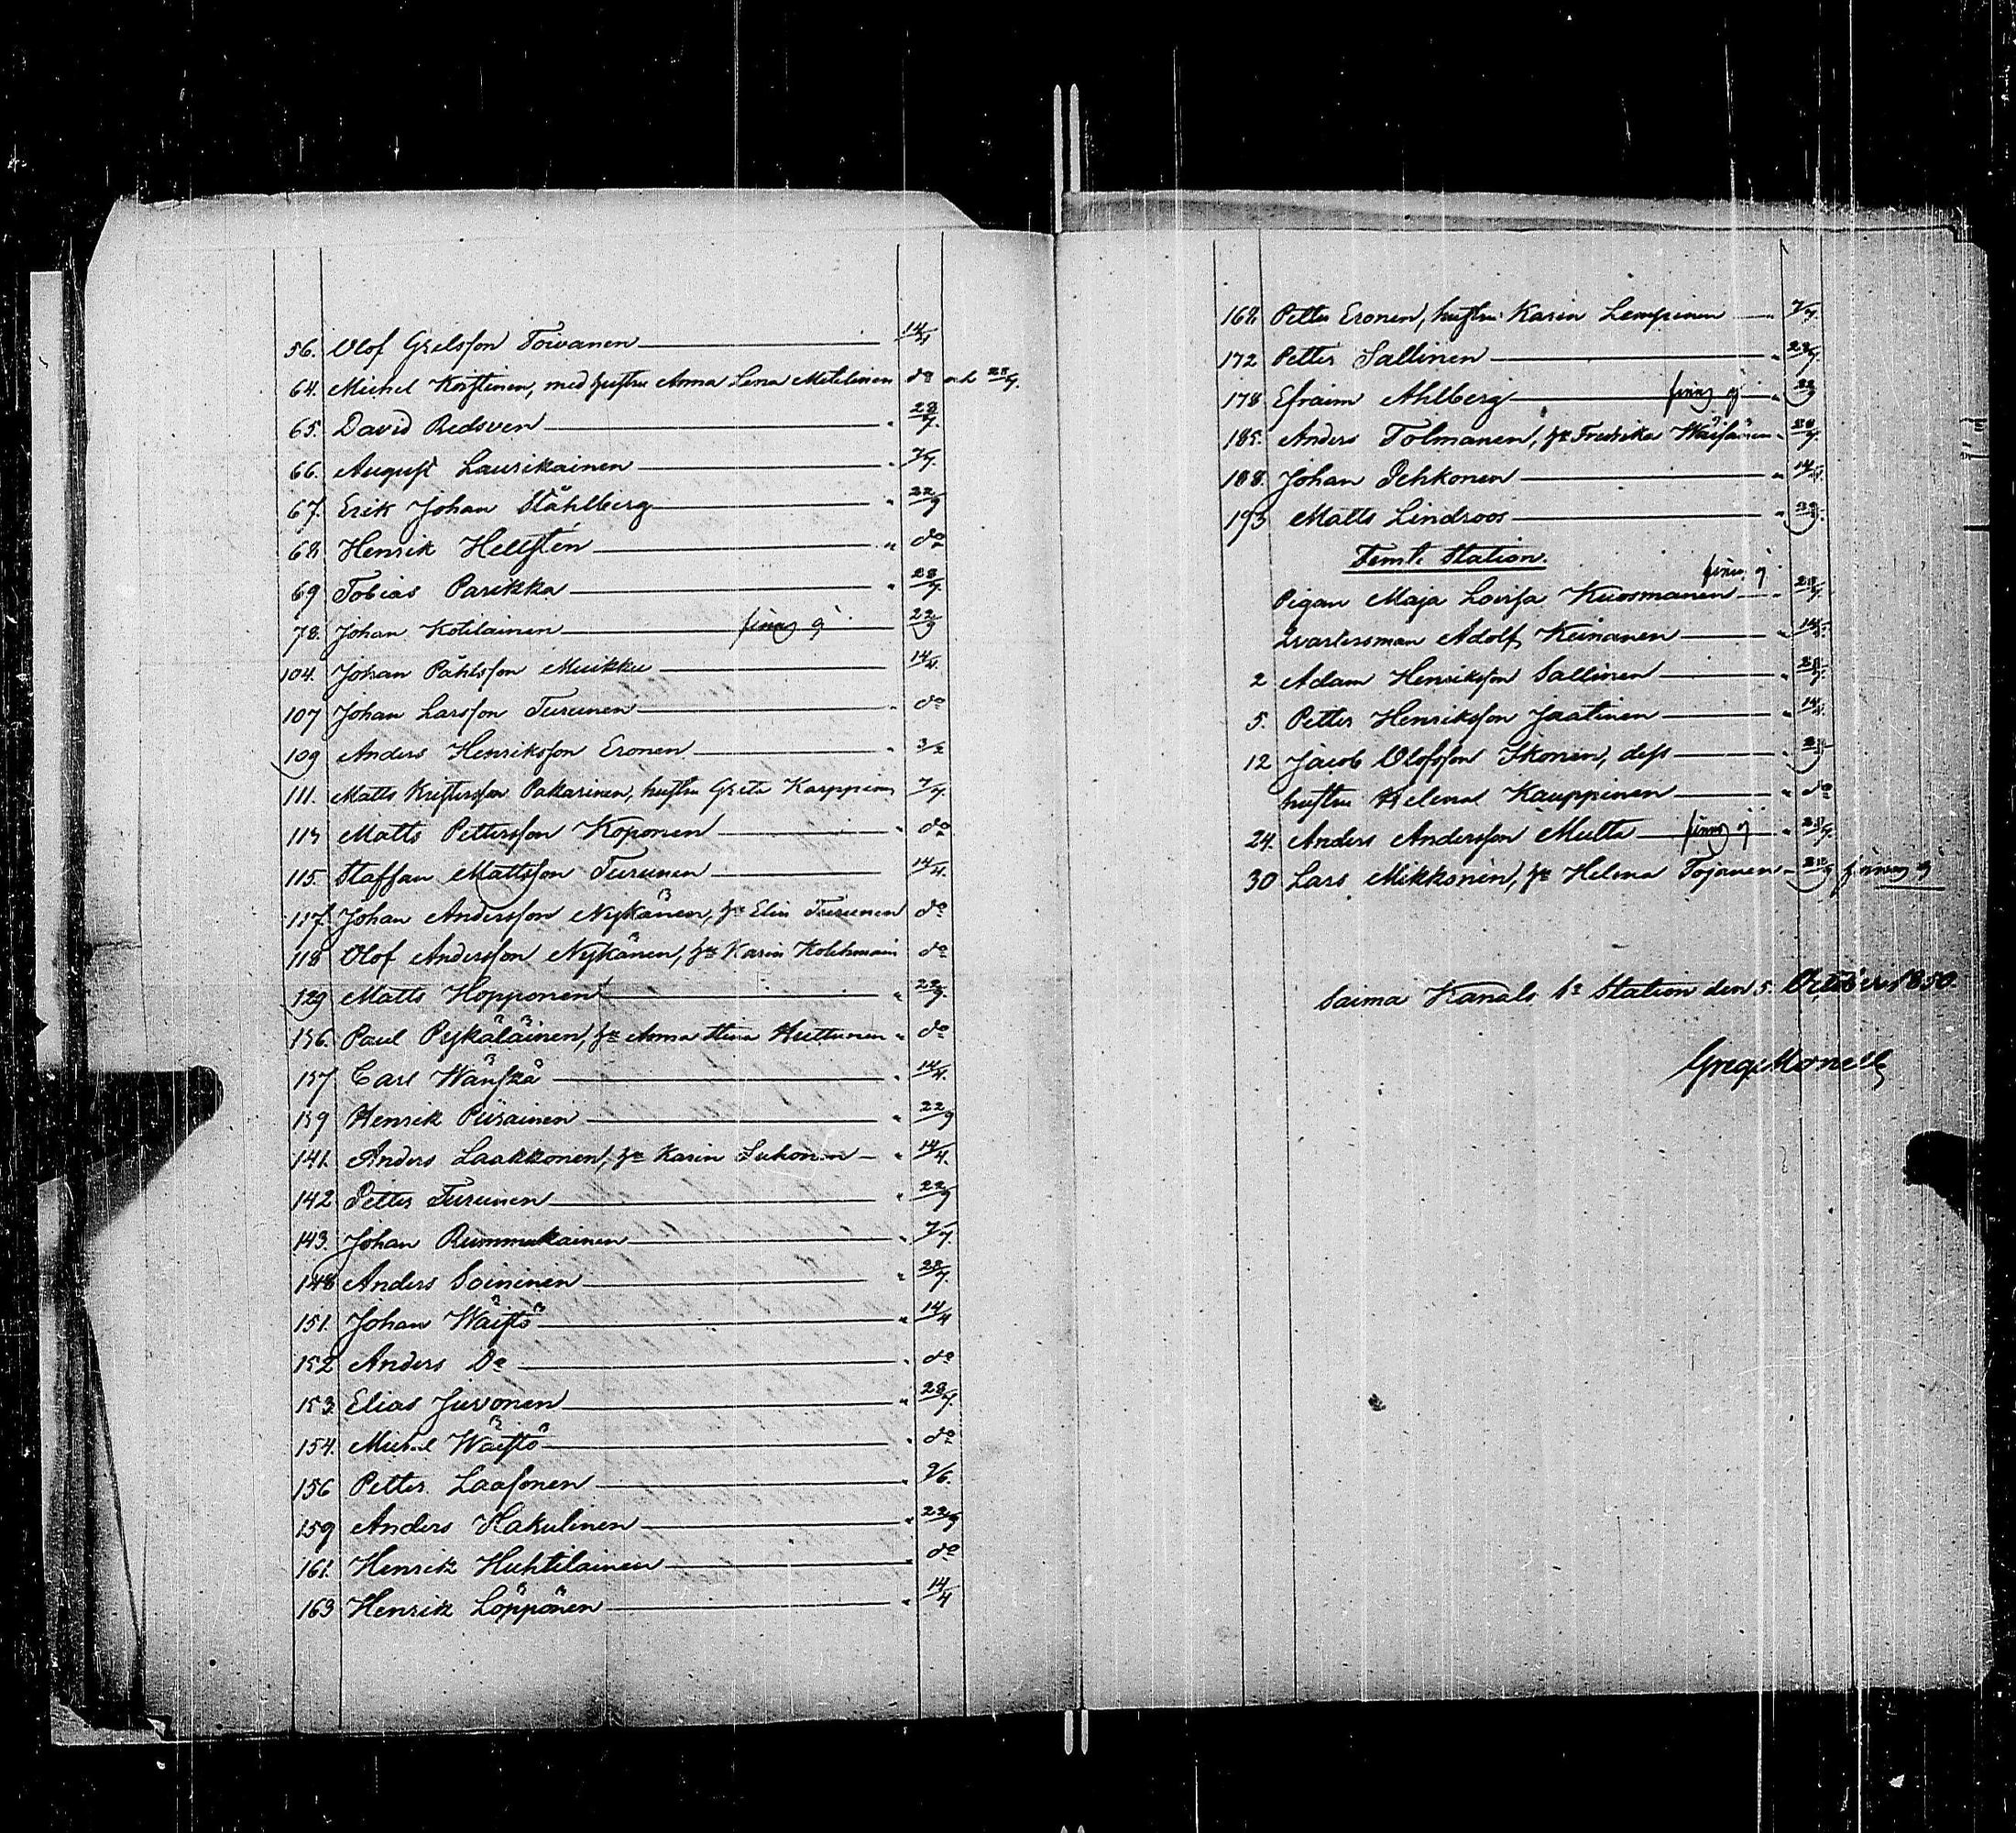 56. Olof Grelsson Toivanen 14/4
64. Michel Korstinen, med hustru Anna Lena Matilainen do och 28/7.
65. David Redsven " 28/7.
66. August Laurikainen " 7/7.
67. Erik Johan Ståhlberg " 22/9
68. Henrik Hellstén " do
69 Tobias Parikka " 28/7.
78. Johan Kotilainen finns ej 22/9
104. Johan Påhlsson Muikku 14/4.
107 Johan Larsson Turunen " do
109 Anders Henriksson Eronen " 3/2
111. Matts Kristersson Pakarinen, hustru Greta Karppinen 7/7.
113 Matts Pettersson Koponen " do
115. Staffan Mattsson Turunen 14/4.
117. Johan Andersson Nykänen, hu Elin Turunen do
118 Olof Andersson Nykänen, hu Karin Kolehmain do
129 Matts Hopponen " 22/9.
136. Paul Pykäläinen, hu Anna Stina Huttunen " do
137 Carl Wänskä " 14/4.
139 Henrik Piirainen " 22/9
141. Anders Laakkonen, hu Karin Suhonen " 14/4.
142 Petter Turunen " 22/9
143. Johan Rummukainen " 7/7.
148 Anders Soininen " 28/7.
151. Johan Wäistö " 14/4
152 Anders Do " do
153 Elias Juvonen " 28/7.
154. Michel Wäistö " do
156 Petter Laasonen " 9/6.
159 Anders Hakulinen " 22/9
161. Henrik Huhtilainen " do
163 Henrik Löppönen " 14/4
168. Petter Eronen, hustru Karin Lempinen " 7/7.
172 Petter Sallinen " 28/7.
178 Efraim Ahlberg finns ej " 22/9
185. Anders Tolmanen, hu Fredrika Wäisänen " 28/7.
188. Johan Pehkonen " 14/4.
193 Matts Lindroos " 22/9.
Femte Station.
Pigan Maja Lovisa Kuosmanen finns ej " 28/7.
Qvartersman Adolf Keinanen " 14/4.
2 Adam Henriksson Sallinen " 28/7.
5. Petter Henriksson Jaatinen " 14/4.
12 Jacob Olofsson Ikonen, dess " 22/9
hustru Helena Kauppinen " do
24. Anders Andersson Multa finns ej " 28/7.
30 Lars Mikkonen, hu Helena Tojanen " 22/9 finnes ej
Saima Kanals 1a Station den 5. October 1850.